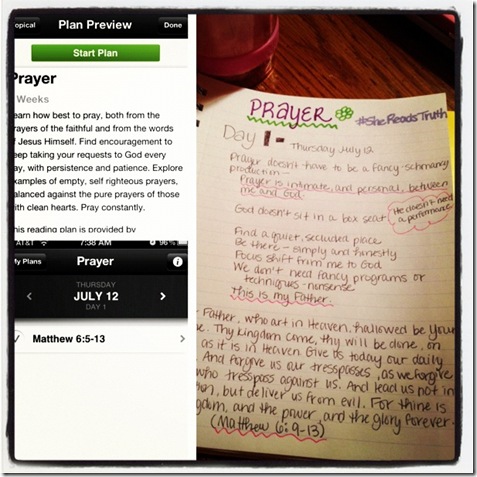 opical Plan Preview Done
Start Plan
Prayer
Weeks
earn how best to pray, both from the
rayers of the faithful and from the words
f Jesus Himself. Find encouragement to
eep taking your requests to God every
ay, with persistence and patience. Explore
xamples of empty, self righteous prayers,
alanced against the pure prayers of those
ith clean hearts. Pray constantly.
his reading plan is provided by
AT&T 7:38 AM 96%
My Plans Prayer
THURSDAY
JULY 12
DAY 1
Matthew 6:5-13
PRAYER
#SheReadsTruth
Day 1 - Thursday July 12
Prayer doesn't have to be a fancy-schmancy
production -
Prayer is intimate, and personal, between
me and God.
God doesn't sit in a box seat
He doesn't need
a performance
Find a quiet, secluded place
Be there - simply and honestly
Focus shift from me to God
We don't need fancy programs or
techniques - nonsense
This is my Father.
Father, who art in Heaven, hallowed be your
e. Thy kingdom come, thy will be done, on
as it is in Heaven. Give us today our daily
And forgive us our tresspasses, as we forgive
who tresspass against us. And lead us not in
ion, but deliver us from evil. For thine is
gdom, and the power, and the glory forever.
(Matthew 6:9-13)